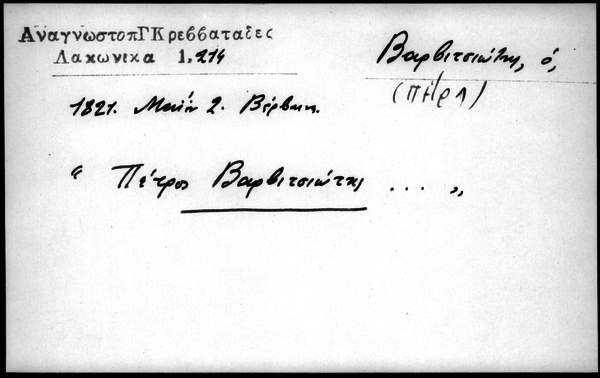 ΑναγνωστοπΓΚρεββαταδες
Λακωνικα 1,214
Βαρβιτσιώτης, ὁ,
(ΠΗρλ)
1821. Μαΐου 2. Βέρβενα.
“ Πέτρος Βαρβιτσιώτης ... „